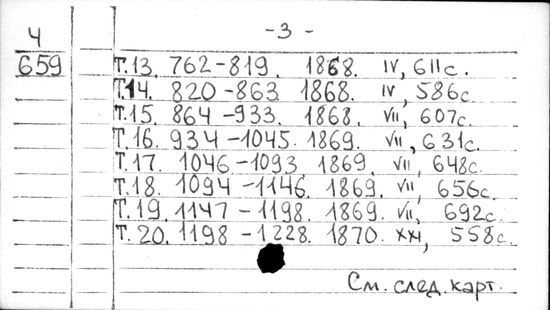 Ч
659
- 3 -
Т.13. 762-819. 1868. IV, 611с.
Т.14. 820-863. 1868. IV, 586с.
Т.15. 864-933. 1868. VII, 607с.
Т.16. 934-1045. 1869. VII, 631с.
Т.17. 1046-1093. 1869. VII, 648с.
Т.18. 1094-1146. 1869. VII, 656с.
Т.19. 1147-1198. 1869. VII, 692с.
Т.20. 1198-1228. 1870. XXI, 558с.
См. след. карт.